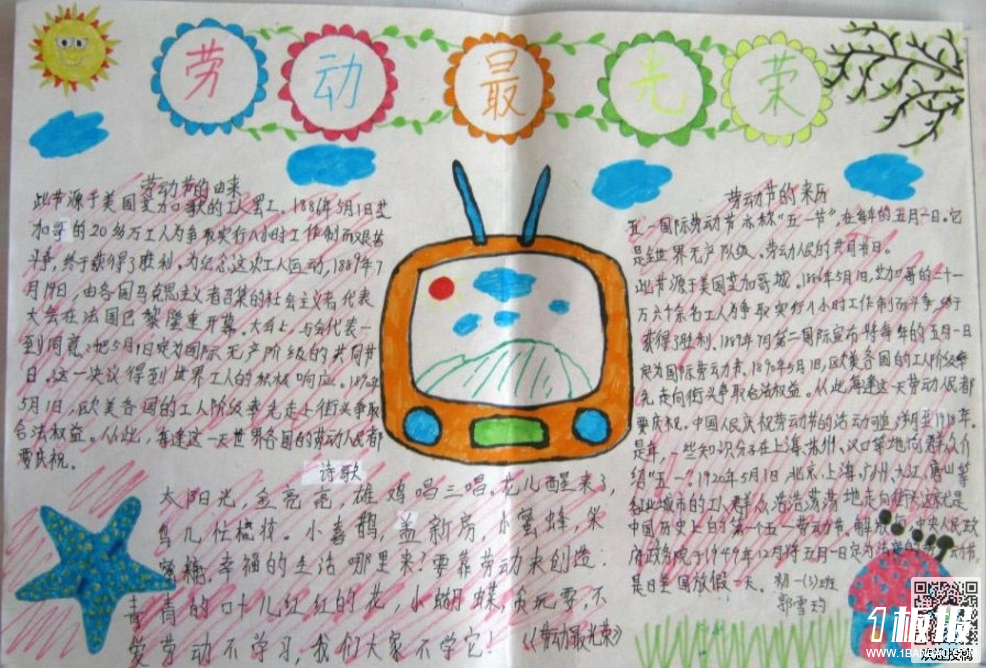 劳动最光荣
劳动节的由来
此节源于美国芝加哥的工人罢工。1886年5月1日芝
加哥的20多万工人为争取实行八小时工作制而艰苦
斗争,终于获得了胜利。为纪念这次工人运动,1889年7
月14日,由各国马克思主义者召集的社会主义者代表
大会在法国巴黎隆重开幕。大会上,与会代表一
到同意:把5月1日定为国际无产阶级的共同节
日。这一决议得到世界工人的积极响应。1890年
5月1日,欧美各国的工人阶级率先走上街头争取
合法权益。从此,每逢这一天世界各国的劳动人民都
要庆祝。
诗歌
太阳光,金亮亮,雄鸡唱三唱。花儿醒来了,
鸟儿忙梳妆。小喜鹊,盖新房,小蜜蜂,采
蜜糖。幸福的生活哪里来?要靠劳动来创造.
青青的叶儿红红的花,小蝴蝶,贪玩耍,不
爱劳动不学习,我们大家不学它!
《劳动最光荣》
劳动节的来历
五一国际劳动节亦称“五一节”,在每年的五月一日。它
是全世界无产阶级、劳动人民的共同节日。
此节源于美国芝加哥城。1886年5月1日,芝加哥的二十一
万六千余名工人为争取实行八小时工作制而斗争,终于
获得了胜利。1889年7月第二国际宣布将每年的五月一日
定为国际劳动节。1890年5月1日,欧美各国的工人阶级率
先走向街头争取合法权益。从此每逢这一天劳动人民都
要庆祝。中国人民庆祝劳动节的活动可追溯至1918年。
是年,一些知识分子在上海、苏州、汉口等地向群众介
绍“五一”。1920年5月1日,北京、上海、广州、九江、唐山等
工业城市的工人群众浩浩荡荡地走向街头这就是
中国历史上的第一个五一劳动节。解放后,中央人民政
府政务院于1949年12月将五月一日定为法定
是日全国放假一天。
初一(3)班
郭雪
1板报
WWW.1BANBAO.COM